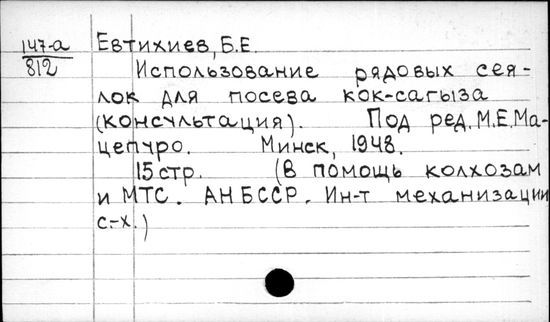 147-а
812
Евтихиев, Б.Е.
Использование рядовых сея-
лок для посева кок-сагыза
(консультация). Под ред. М.Е.Ма-
цепуро. Минск, 1948.
15 стр. (В помощь колхозам
и МТС. АН БССР. Ин-т механизации
с.-х.)